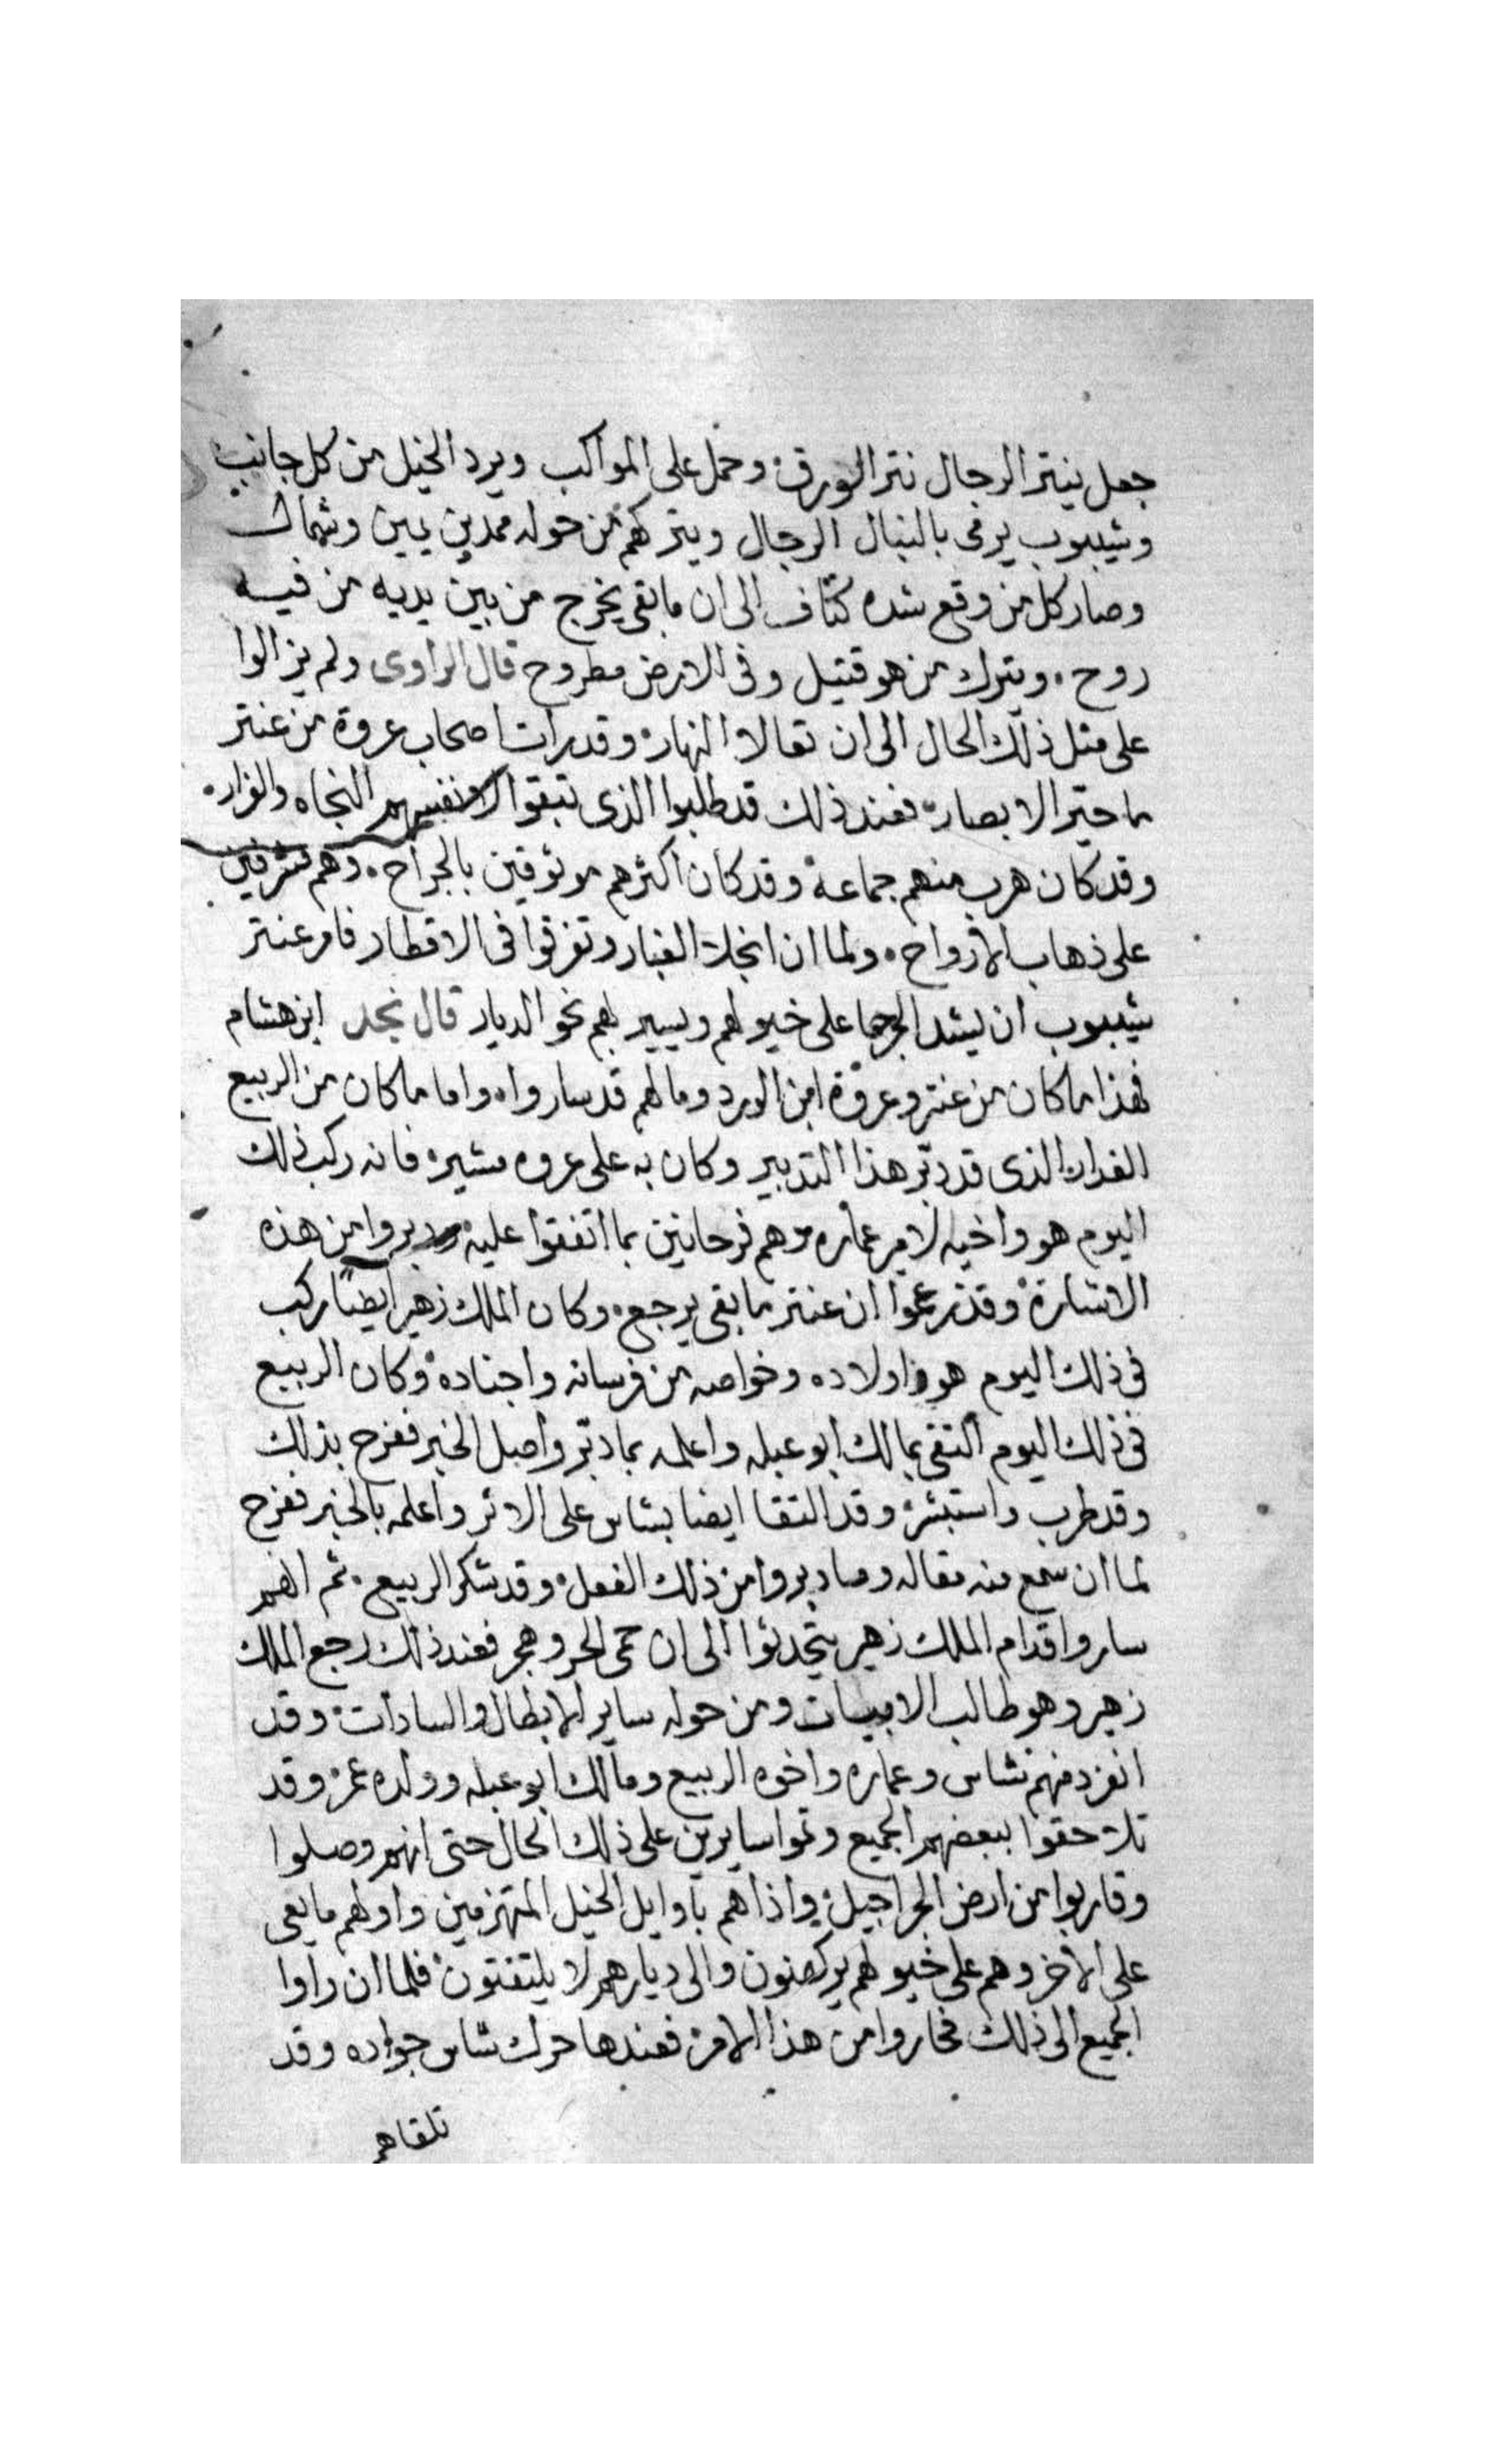 جعل ينتر الرجال نتر الورق وحمل على المواكب ويرد الخيل من كل جانب
وشيبوب يرمى بالنبال الرجال ويتركهم من حوله ممدين يمين وشمال
وصار كل من وقع شده كتاف الى ان ما بقى يخرج من بين يديه من فيه
روح . ويترك من هو قتيل وفى الارض مطروح قال الراوى ولم يزالوا
على متل ذلك الحال الى ان تعالا النهار وقد رات اصحاب عروة من عنتر
ما حير الابصار فعند ذلك قد طلبوا الذى تبقوا لانفسهم النجاه والفرار .
وقد كان هرب منهم جماعة وقد كان اكثرهم موثوقين بالجراح . وهم مشرفين
على ذهاب الارواح . ولما ان انجلا الغبار وتفرقوا فى الاقطار فامر عنتر
شيبوب ان يشد الجرحا على خيولهم ويسير بهم نحو الديار قال نجد ابن هشام
فهذا ما كان من عنتر وعروة ابن الورد وما لهم قد ساروا . واما ما كان من الربيع
الغدار الذى قد دبر هذا التدبير وكان به على عروه مشير فانه ركب ذلك
اليوم هو واخيه لامير عماره وهم فرحانين بما اتفقوا عليه ودبروا من هذه
الاشارة وقد زعموا ان عنتر ما بقى يرجع . وكان الملك زهير ايضًا ركب
فى ذلك اليوم هو واولاده وخواصه من فرسانه واجناده وكان الربيع
فى ذلك اليوم التقى بمالك ابو عبله واعلمه بما دبر واصل الخبر ففرح بذلك
وقد طرب واستبشر وقد التقا ايضا بشاس على الاثر واعلمه بالخبر ففرح
لما ان سمع منه مقاله وما دبروا من ذلك الفعل وقد شكر الربيع . ثم انهم
ساروا قدام الملك زهير يتحدثوا الى ان حمى الحر وهجر فعند ذلك رجع الملك
زهير وهو طالب الابيات ومن حوله ساير الابطال والسادات وقد
انفرد منهم شاس وعماره واخوه الربيع ومالك ابو عبله وولده عمر وقد
تلاحقوا ببعضهم الجميع وتموا سايرين على ذلك الحال حتى انهم وصلوا
وقاربوا من ارض الجراجيل واذاهم باوايل الخيل المتهزمين واولهم ما يعى
على الاخر وهم على خيولهم يركضون والى ديارهم لا يلتفتون فلما ان راوا
الجميع الى ذلك فحاروا من هذا الامر فعندها حرك شاس جواده وقد
تلقاهم